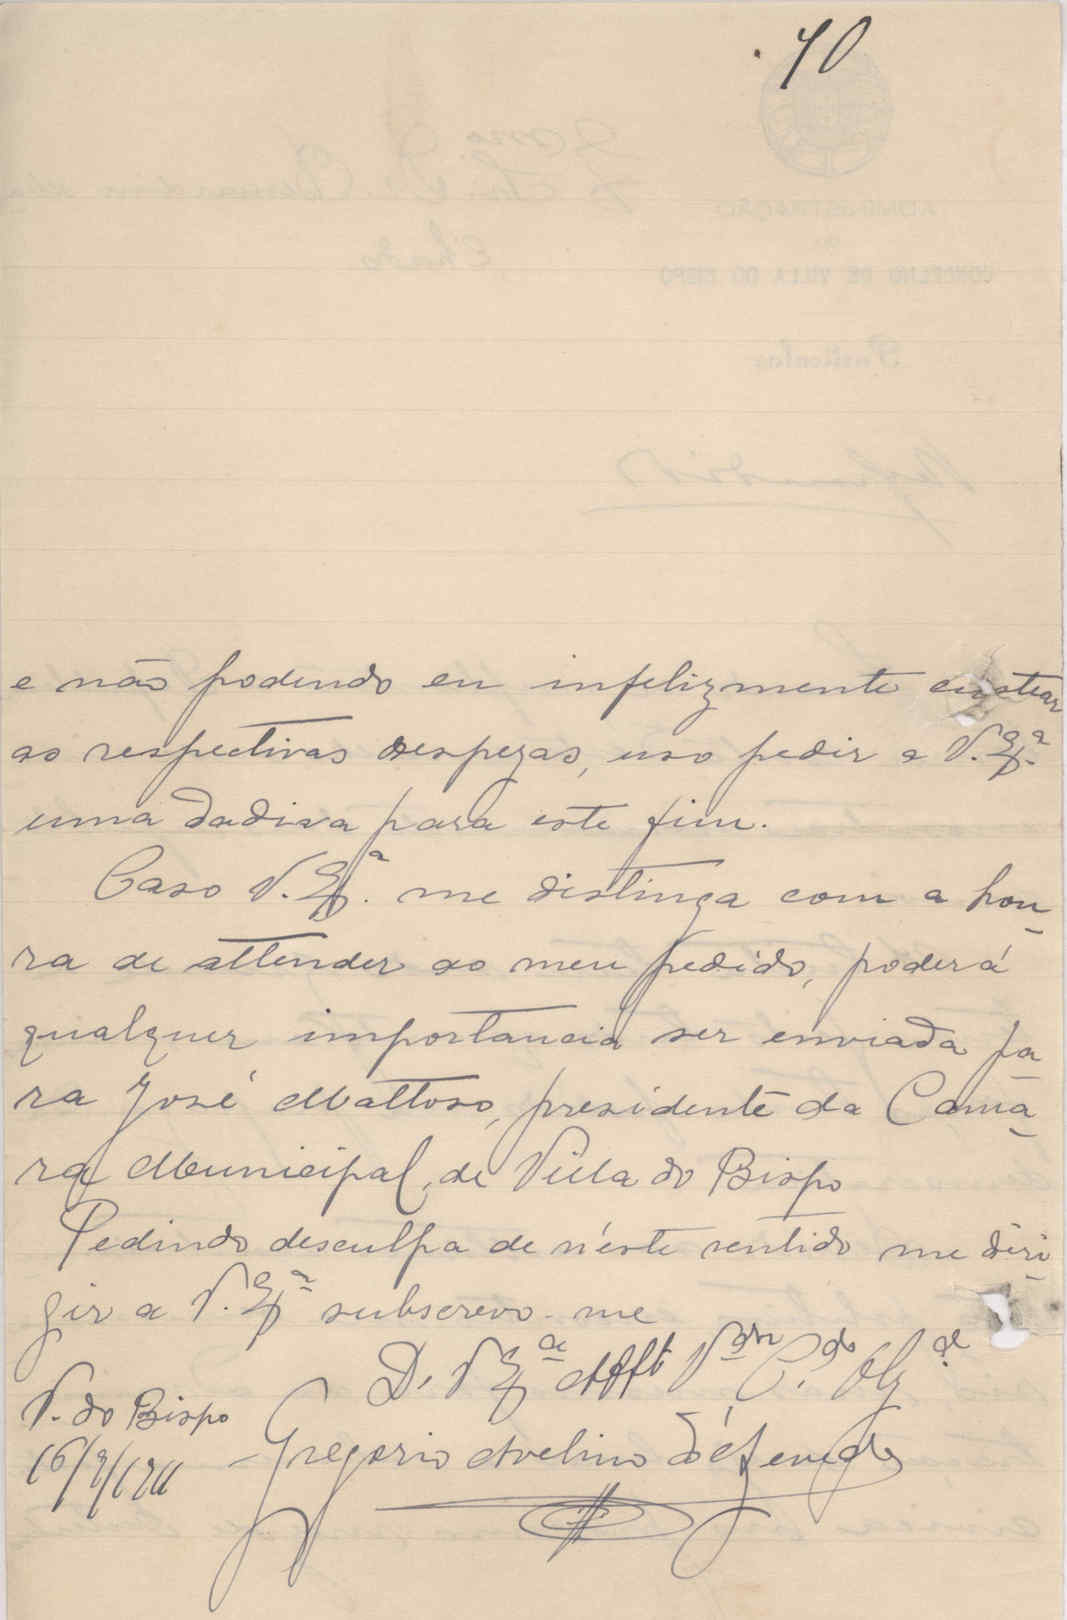 40
e não podendo eu infelizmente custear
as respectivas despezas, uso pedir a V. Ex.ª
uma dadiva para este fim.
Caso V. Ex.ª me distinga com a hon-
ra de attender ao meu pedido, poderá
qualquer importancia ser enviada pa-
ra José Mattoso, presidente da Cama-
ra Municipal, de Villa do Bispo
Pedindo desculpa de n'este sentido me diri-
gir a V. Exª subscrevo-me
D. V Exª Attº Vdor C.do Obgdº
V. do Bispo
Gregorio Avelino
16/9/